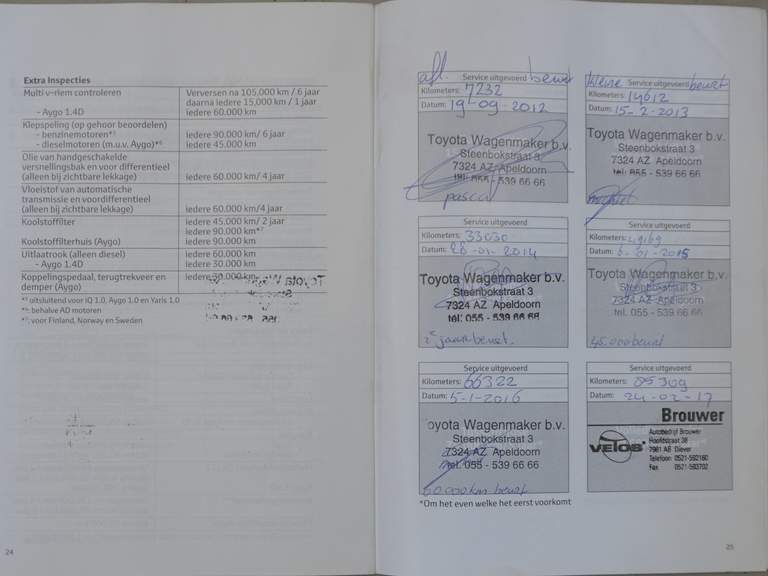 Extra Inspecties
Multi v-riem controleren
Verversen na 105.000 km / 6 jaar
daarna iedere 15.000 km / 1 jaar
- Aygo 1.4D
iedere 60.000 km
Klepspeling (op gehoor beoordelen)
- benzinemotoren*⁵
iedere 90.000 km/ 6 jaar
- dieselmotoren (m.u.v. Aygo)*⁶
iedere 45.000 km
Olie van handgeschakelde
versnellingsbak en voor differentieel
(alleen bij zichtbare lekkage)
iedere 60.000 km/ 4 jaar
Vloeistof van automatische
transmissie en voordifferentieel
(alleen bij zichtbare lekkage)
iedere 60.000 km/4 jaar
Koolstoffilter
iedere 45.000 km/ 2 jaar
iedere 90.000 km*⁷
Koolstoffilterhuis (Aygo)
iedere 90.000 km
Uitlaatrook (alleen diesel)
iedere 60.000 km
- Aygo 1.4D
iedere 30.000 km
Koppelingspedaal, terugtrekveer en
demper (Aygo)
iedere 30.000 km
*⁵ uitsluitend voor iQ 1.0, Aygo 1.0 en Yaris 1.0
*⁶: behalve AD motoren
*⁷: voor Finland, Norway en Sweden
24
afl. Service uitgevoerd beurt
Kilometers: 7232
Datum: 19-09-2012
Toyota Wagenmaker b.v.
Steenbokstraat 3
7324 AZ Apeldoorn
tel: 055 - 539 66 66
pascal
kleine Service uitgevoerd beurt
Kilometers: 14612
Datum: 15-2-2013
Toyota Wagenmaker b.v.
Steenbokstraat 3
7324 AZ Apeldoorn
tel: 055 - 539 66 66
Service uitgevoerd
Kilometers: 33030
Datum: 28-01-2014
Toyota Wagenmaker b.v.
Steenbokstraat 3
7324 AZ Apeldoorn
tel: 055 - 539 66 66
Service uitgevoerd
Kilometers:
Datum: 6-01-2015
Toyota Wagenmaker b.v.
Steenbokstraat 3
7324 AZ Apeldoorn
tel: 055 - 539 66 66
45.000 beurt
Service uitgevoerd
Kilometers: 66322
Datum: 5-1-2016
oyota Wagenmaker b.v.
Steenbokstraat 3
7324 AZ Apeldoorn
tel. 055 - 539 66 66
60.000 km beurt
Service uitgevoerd
Kilometers: 85309
Datum: 24-02-17
Brouwer
VELOS
Autobedrijf Brouwer
Hoofdstraat 38
7981 AB Diever
Telefoon: 0521-592160
Fax 0521-593702
*Om het even welke het eerst voorkomt
25